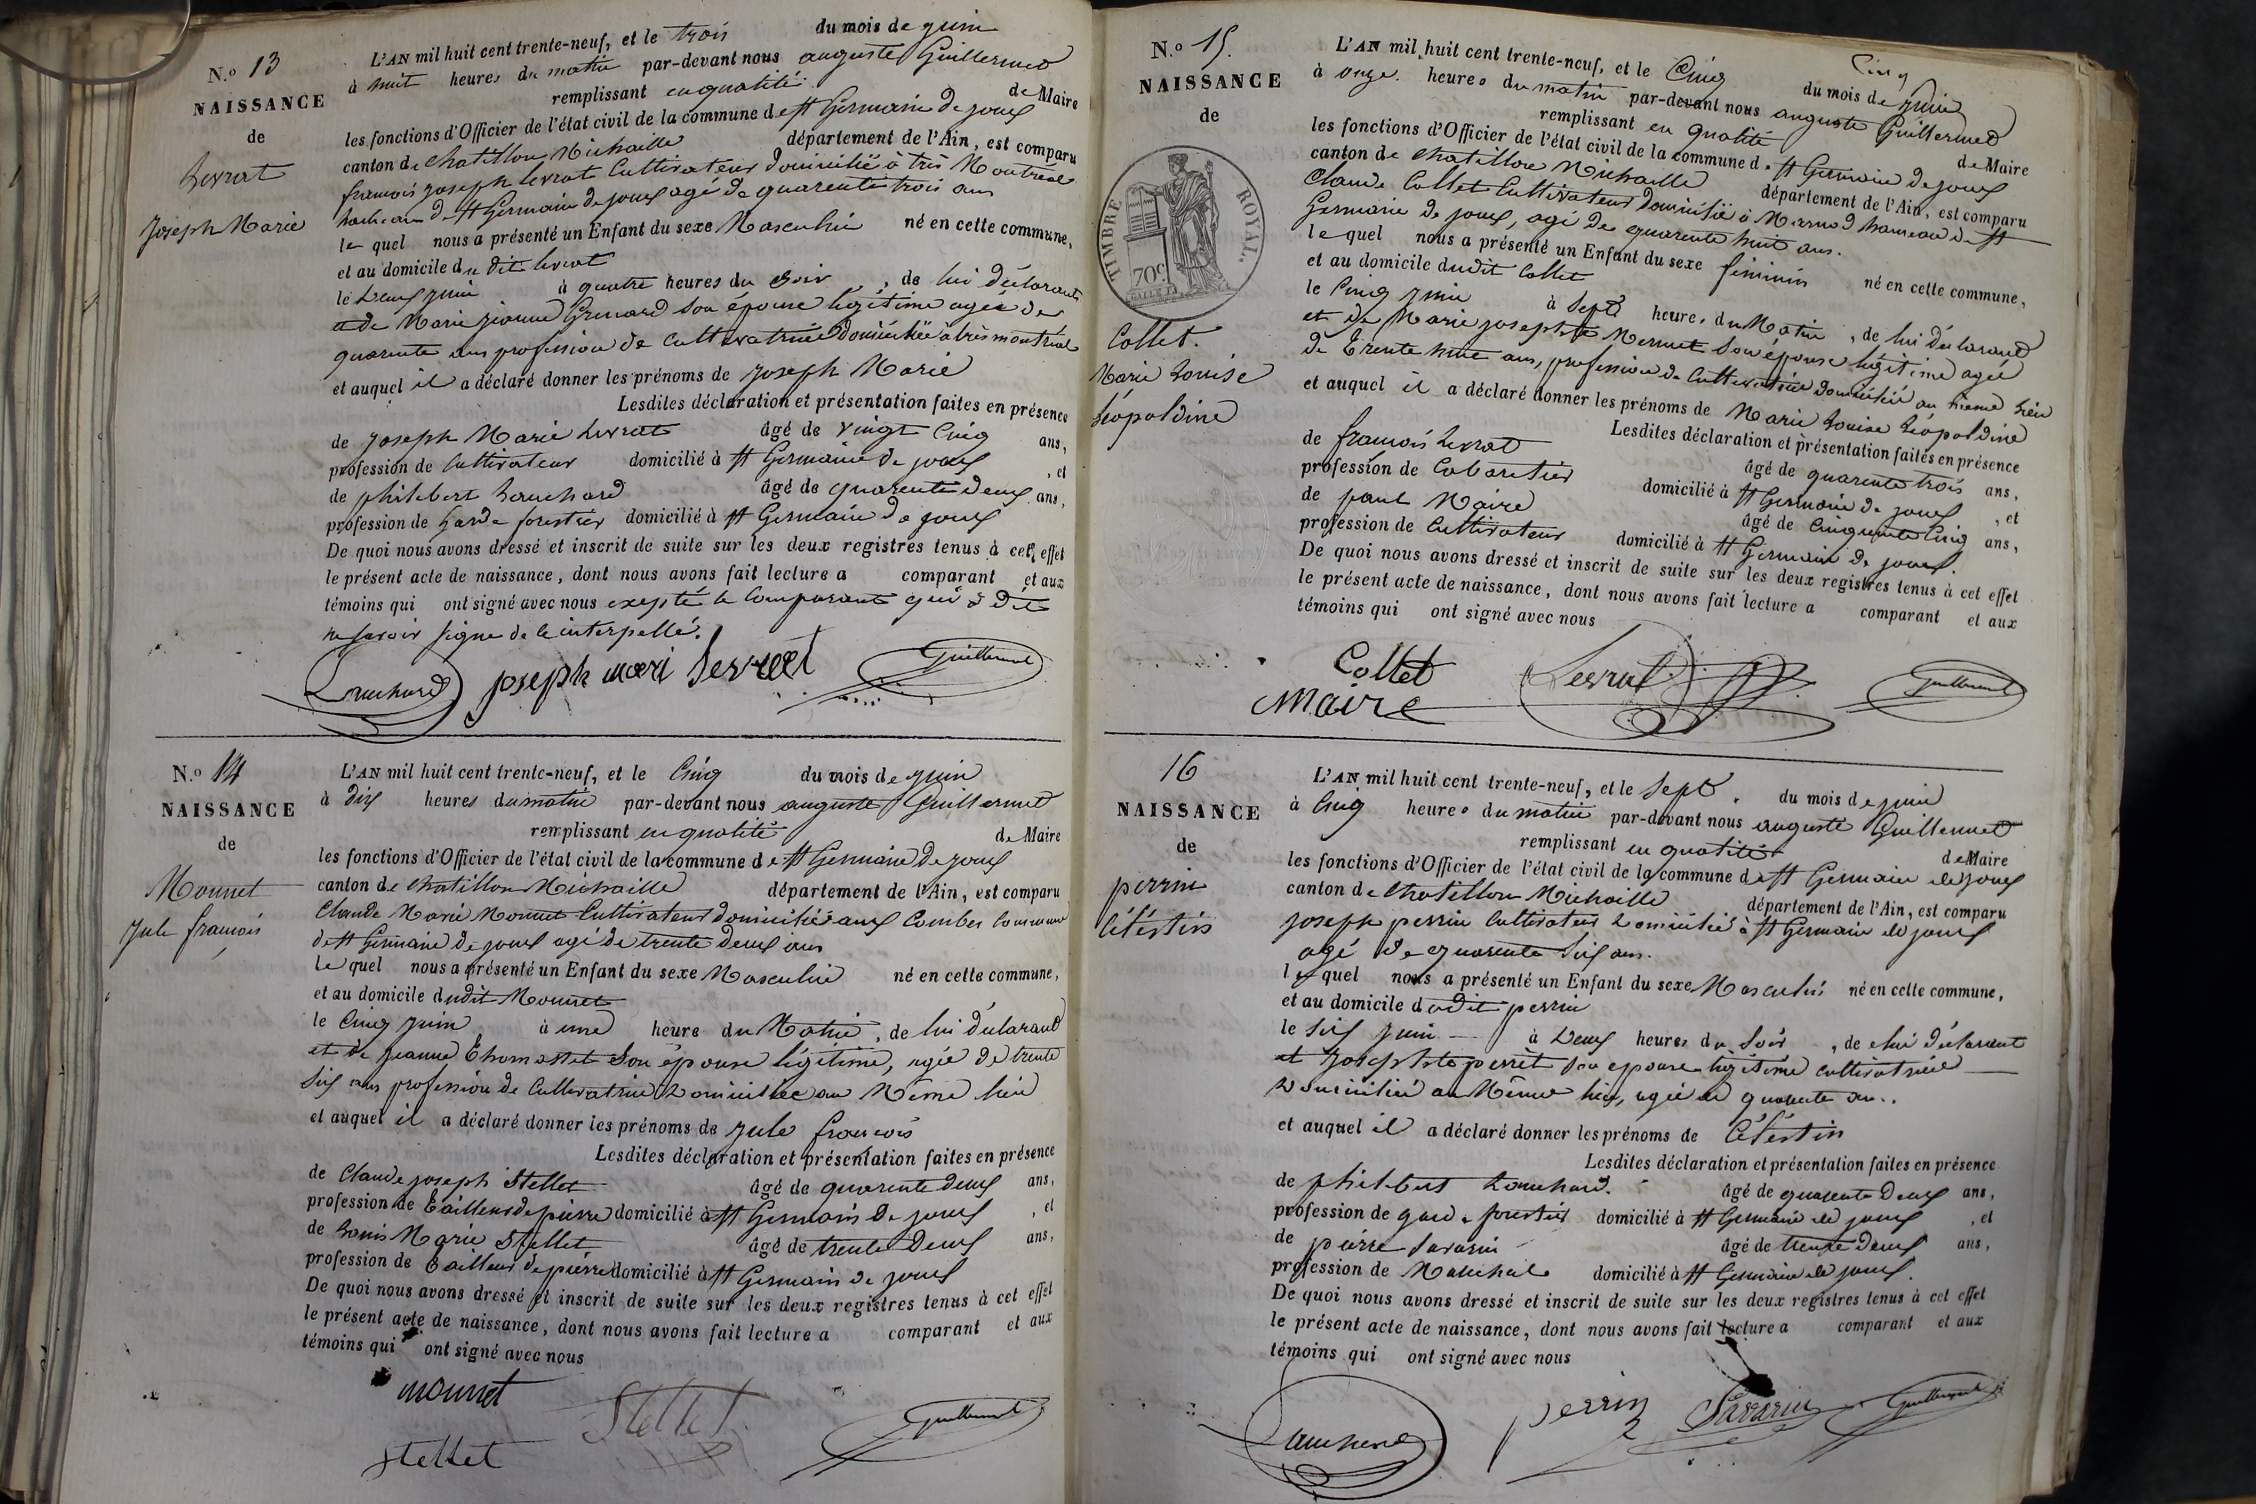 N.o 13
NAISSANCE
de
Levrat
Joseph Marie
L'AN mil huit cent trente-neuf, et le trois du mois de juin
à huit heures du matin par-devant nous auguste Guillermet
remplissant en qualité de Maire
les fonctions d'Officier de l'état civil de la commune de St Germain de joux
canton de Chatillon Michaille département de l'Ain, est comparu
francois joseph Levrat Cultivateur domicilié à très Montreal
hameau de St Germain de joux agé de quarente trois ans
le quel nous a présenté un Enfant du sexe Masculin né en cette commune,
et au domicile du dit Levrat
le Deux juin à quatre heures du Soir, de lui déclarant
et de Marie jeanne Grenard Son épouse légitime agée de
quarente ans profession de Cultivatrice domiciliée à très montréal
et auquel il a déclaré donner les prénoms de Joseph Marie
Lesdites déclaration et présentation faites en présence
de joseph Marie Levrat âgé de vingt Cinq ans,
profession de Cultivateur domicilié à St Germain de joux, et
de philibert Lauchard âgé de quarente deux ans,
profession de Garde forestier domicilié à St Germain de joux
De quoi nous avons dressé et inscrit de suite sur les deux registres tenus à cet effet
le présent acte de naissance, dont nous avons fait lecture a comparant et aux
témoins qui ont signé avec nous exepté le Comparant qui à Dit
ne savoir signe de ce interpellé.
Lauchard joseph mari levrat Guillermet
N.o 14
NAISSANCE
de
Monnet
Jule francois
L'AN mil huit cent trente-neuf, et le Cinq du mois de juin
à dix heures du matin par-devant nous auguste Guillermet
remplissant en qualité de Maire
les fonctions d'Officier de l'état civil de la commune de St Germain de joux
canton de Chatillon Michaille département de l'Ain, est comparu
Claude Marie Monnet Cultivateur domicilié aux Combes Commune
de St Germain de joux agé de trente deux ans
le quel nous a présenté un Enfant du sexe Masculin né en cette commune,
et au domicile dudit Monnet
le Cinq juin à une heure du Matin, de lui déclarant
et de jeanne Thomasset Son épouse légitime, agée de trente
Six ans profession de Cultivatrice Domiciliée au Même lieu
et auquel il a déclaré donner les prénoms de Jule francois
Lesdites déclaration et présentation faites en présence
de Claude joseph Stellet âgé de quarente deux ans,
profession de Tailleur de pierre domicilié à St Germain de joux, et
de Louis Marie Stellet âgé de trente Deux ans,
profession de Tailleur de pierre domicilié à St Germain de joux
De quoi nous avons dressé et inscrit de suite sur les deux registres tenus à cet effet
le présent acte de naissance, dont nous avons fait lecture a comparant et aux
témoins qui ont signé avec nous
monnet Stellet Guillermet
stellet
N.o 15.
NAISSANCE
de
TIMBRE ROYAL.
70c
Collet.
Marie Louise
Léopoldine
Cinq
L'AN mil huit cent trente-neuf, et le Cinq du mois de juin
à onze heures du matin par-devant nous auguste Guillermet
remplissant en qualité de Maire
les fonctions d'Officier de l'état civil de la commune de St Germain de joux
canton de Chatillon Michaille département de l'Ain, est comparu
Claude Collet Cultivateur domicilié à Marnod hameau de St
Germain de joux, agé de quarente huit ans.
le quel nous a présenté un Enfant du sexe féminin né en cette commune,
et au domicile dudit Collet
le Cinq juin à Sept heures du Matin, de lui déclarant
et de Marie josephte Mermet Son épouse légitime agée
de trente huit ans, profession de Cultivatrice domiciliée au même lieu
et auquel il a déclaré donner les prénoms de Marie Louise Léopoldine
Lesdites déclaration et présentation faites en présence
de francois Levrat âgé de quarente trois ans,
profession de Cabaretier domicilié à St Germain de joux, et
de paul Maire âgé de Cinquante Cinq ans,
profession de Cultivateur domicilié à St Germain de joux.
De quoi nous avons dressé et inscrit de suite sur les deux registres tenus à cet effet
le présent acte de naissance, dont nous avons fait lecture a comparant et aux
témoins qui ont signé avec nous
Collet Levrat Guillermet
Maire
16
NAISSANCE
de
perrin
Céléstin
L'AN mil huit cent trente-neuf, et le Sept du mois de juin
à Cinq heures du matin par-devant nous auguste Guillermet
remplissant en qualité de Maire
les fonctions d'Officier de l'état civil de la commune de St Germain de joux
canton de Chatillon Michaille département de l'Ain, est comparu
joseph perrin Cultivateur Domicilié à St Germain de joux
agé de quarente Six ans.
le quel nous a présenté un Enfant du sexe Masculin né en cette commune,
et au domicile dudit perrin
le Six juin à Deux heures du Soir, de lui déclarant
et josephte perrèt son epouse légitime cultivatrice
Domiciliée au Même lieu, agée de quarente ans.
et auquel il a déclaré donner les prénoms de Céléstin
Lesdites déclaration et présentation faites en présence
de philibert Lauchard. âgé de quarente Deux ans,
profession de garde forestier domicilié à St Germain de joux, et
de pierre Savarin âgé de trente deux ans,
profession de Maréchal domicilié à St Germain de joux.
De quoi nous avons dressé et inscrit de suite sur les deux registres tenus à cet effet
le présent acte de naissance, dont nous avons fait lecture a comparant et aux
témoins qui ont signé avec nous
Lauchard perrin Savarin Guillermet